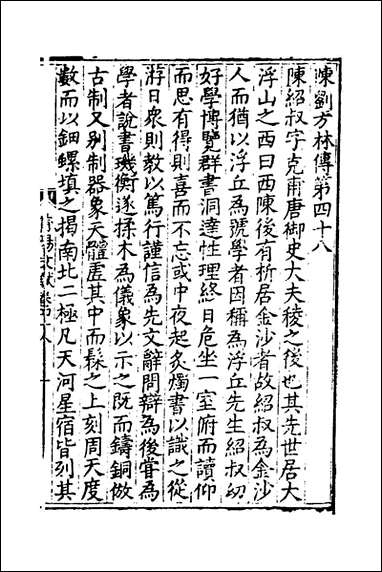 陳劉方林傳第四十八
陳紹叔字克甫唐御史大夫稜之後也其先世居大
浮山之西曰西陳後有析居金沙者故紹叔為金沙
人而猶以浮丘為號學者因稱為浮丘先生紹叔幼
好學博覽群書洞達性理終日危坐一室俯而讀仰
而思有得則喜而不忘或中夜起炙燭書以識之從
游日衆則教以篤行謹信為先文辭問辯為後嘗為
學者說書璣衡遂揉木為儀象以示之既而鑄銅倣
古制又别制器象天體虛其中而髹之上刻周天度
數而以鈿螺填之揭南北二極凡天河星宿皆列其